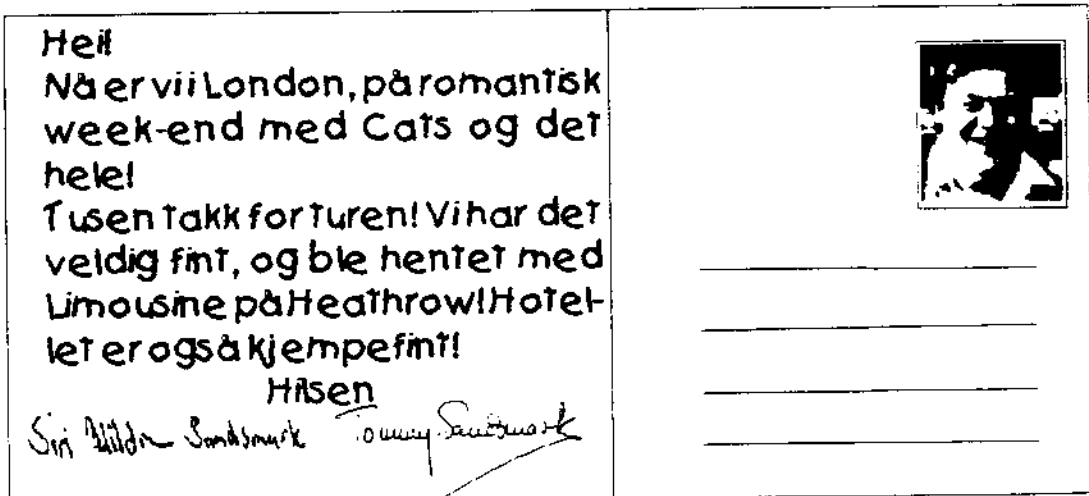 Hei!
Nå er vi i London, på romantisk
week-end med Cats og det
hele!
Tusen takk for turen! Vi har det
veldig fint, og ble hentet med
Limousine på Heathrow! Hotel-
let er også kjempefint!
Hilsen
Siri Sandsmark Tommy Sandsmark